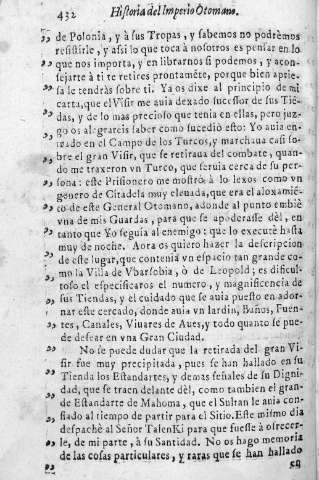 432 Historia del Imperio Otomano.
,, de Polonia, y à sus Tropas, y sabemos no podrèmos
,, resistirle, y assi lo que toca à nosotros es pensar en lo
,, que nos importa, y en librarnos si podemos, y acon-
,, sejarte à ti te retires prontamẽte, porque bien aprie-
,, sa le tendràs sobre ti. Ya os dixe al principio de mi
,, carta, que el Visir me auia dexado sucessor de sus Tiẽ-
,, das, y de lo mas precioso que tenia en ellas, pero juz-
,, go os alegrareis saber como sucediò esto: Yo auia en-
,, trado en el Campo de los Turcos, y marchaua casi so-
,, bre el gran Visir, que se retiraua del combate, quan-
,, do me traxeron vn Turco, que seruia cerca de su per-
,, sona: este Prisionero me mostrò à lo lexos como vn
,, genero de Citadela muy eleuada, que era el aloxamiẽ-
,, to de este General Otomano, adonde al punto embiè
,, vna de mis Guardas, para que se apoderasse dèl, en
,, tanto que Yo seguia al enemigo: que lo executè hasta
,, muy de noche. Aora os quiero hazer la descripcion
,, de este lugar, que contenia vn espacio tan grande co-
,, mo la Villa de Vbarsobia, ò de Leopold; es dificul-
,, toso el especificaros el numero, y magnificencia de
,, sus Tiendas, y el cuidado que se auia puesto en ador-
,, nar este cercado, donde auia vn Iardin, Baños, Fuen-
,, tes, Canales, Viuares de Aues, y todo quanto se pue-
,, de desear en vna Gran Ciudad.
,, No se puede dudar que la retirada del gran Vi-
,, sir fue muy precipitada, pues se han hallado en su
,, Tienda los Estandartes, y demas señales de su Digni-
,, dad, que se traen delante dèl, como tambien el gran-
,, de Estandarte de Mahoma, que el Sultan le auia con-
,, fiado al tiempo de partir para el Sitio. Este mismo dia
,, despachè al Señor TalenKi para que fuesse à ofrecer-
,, le, de mi parte, à su Santidad. No os hago memoria
,, de las cosas particulares, y raras que se han hallado
,, en